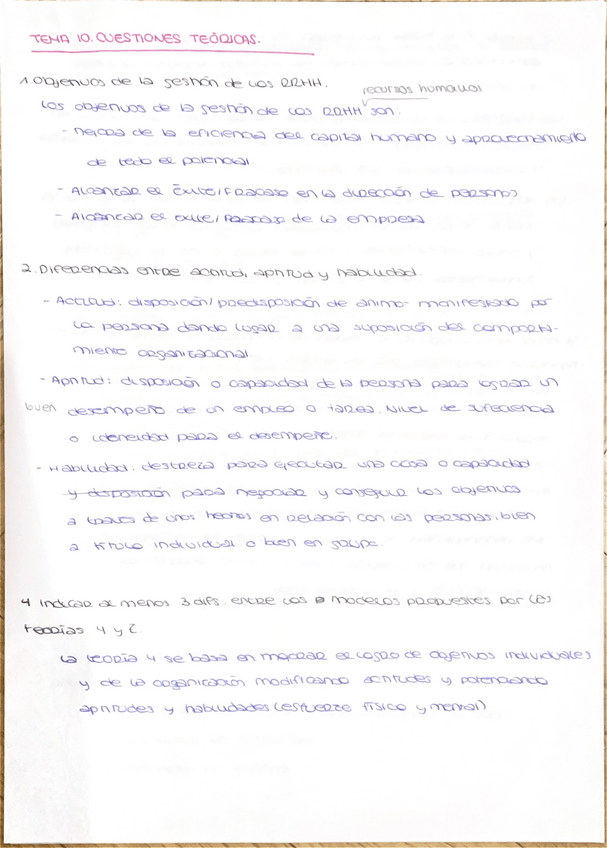 TEMA 10. CUESTIONES TEÓRICAS.
1. Objetivos de la gestión de los RRHH.
recursos humanos
Los objetivos de la gestión de los RRHH son:
- Mejora de la eficiencia del capital humano y aprovechamiento
de todo el potencial.
- Alcanzar el éxito/fracaso en la dirección de personas
- Alcanzar el éxito/fracaso de la empresa
2. Diferencias entre actitud, aptitud y habilidad.
- Actitud: disposición/predisposición de animo manifestado por
la persona dando lugar a una suposición del comporta-
miento organizacional.
- Aptitud: disposición o capacidad de la persona para lograr un
buen desempeño de un empleo o tarea. Nivel de suficiencia
o idoneidad para el desempeño.
- Habilidad: destreza para ejecutar una cosa o capacidad
y disposición para negociar y conseguir los objetivos
a través de unos hechos en relación con las personas, bien
a título individual o bien en grupo.
4 Indicar al menos 3 difs. entre los modelos propuestos por las
teorías 4 y Z.
La teoría 4 se basa en mejorar el logro de objetivos individuales
y de la organización modificando actitudes y potenciando
aptitudes y habilidades (esfuerzo físico y mental)